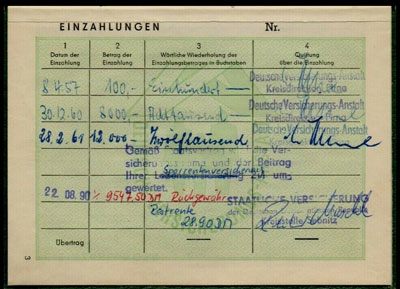 EINZAHLUNGEN Nr.
1 2 3 4
Datum der Einzahlung Betrag der Einzahlung Wörtliche Wiederholung des Einzahlungsbetrages in Buchstaben Quittung über die Einzahlung
8.4.57 100,- Einhundert — Deutsche Versicherungs-Anstalt
Kreisdirektion Pirna
30.12.60 8000,- Achttausend — Deutsche Versicherungs-Anstalt
Kreisdirektion Pirna
28.2.61 12.000,- Zwölftausend Deutsche Versicherungs-Anstalt
Gemäß der Ver-
sicherung und der Beitrag
Sparrentenversicherung
Ihrer um-
gewertet.
22.08.90 9547,50 DM Rückgewähr STAATLICHE VERSICHERUNG
Zeitrente
28.90 DM Kreisstelle Sebnitz
Übertrag
3